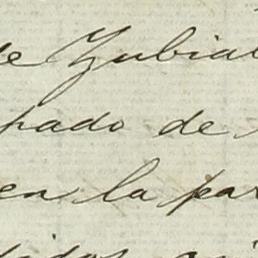 de Zubia
pado de
en la par